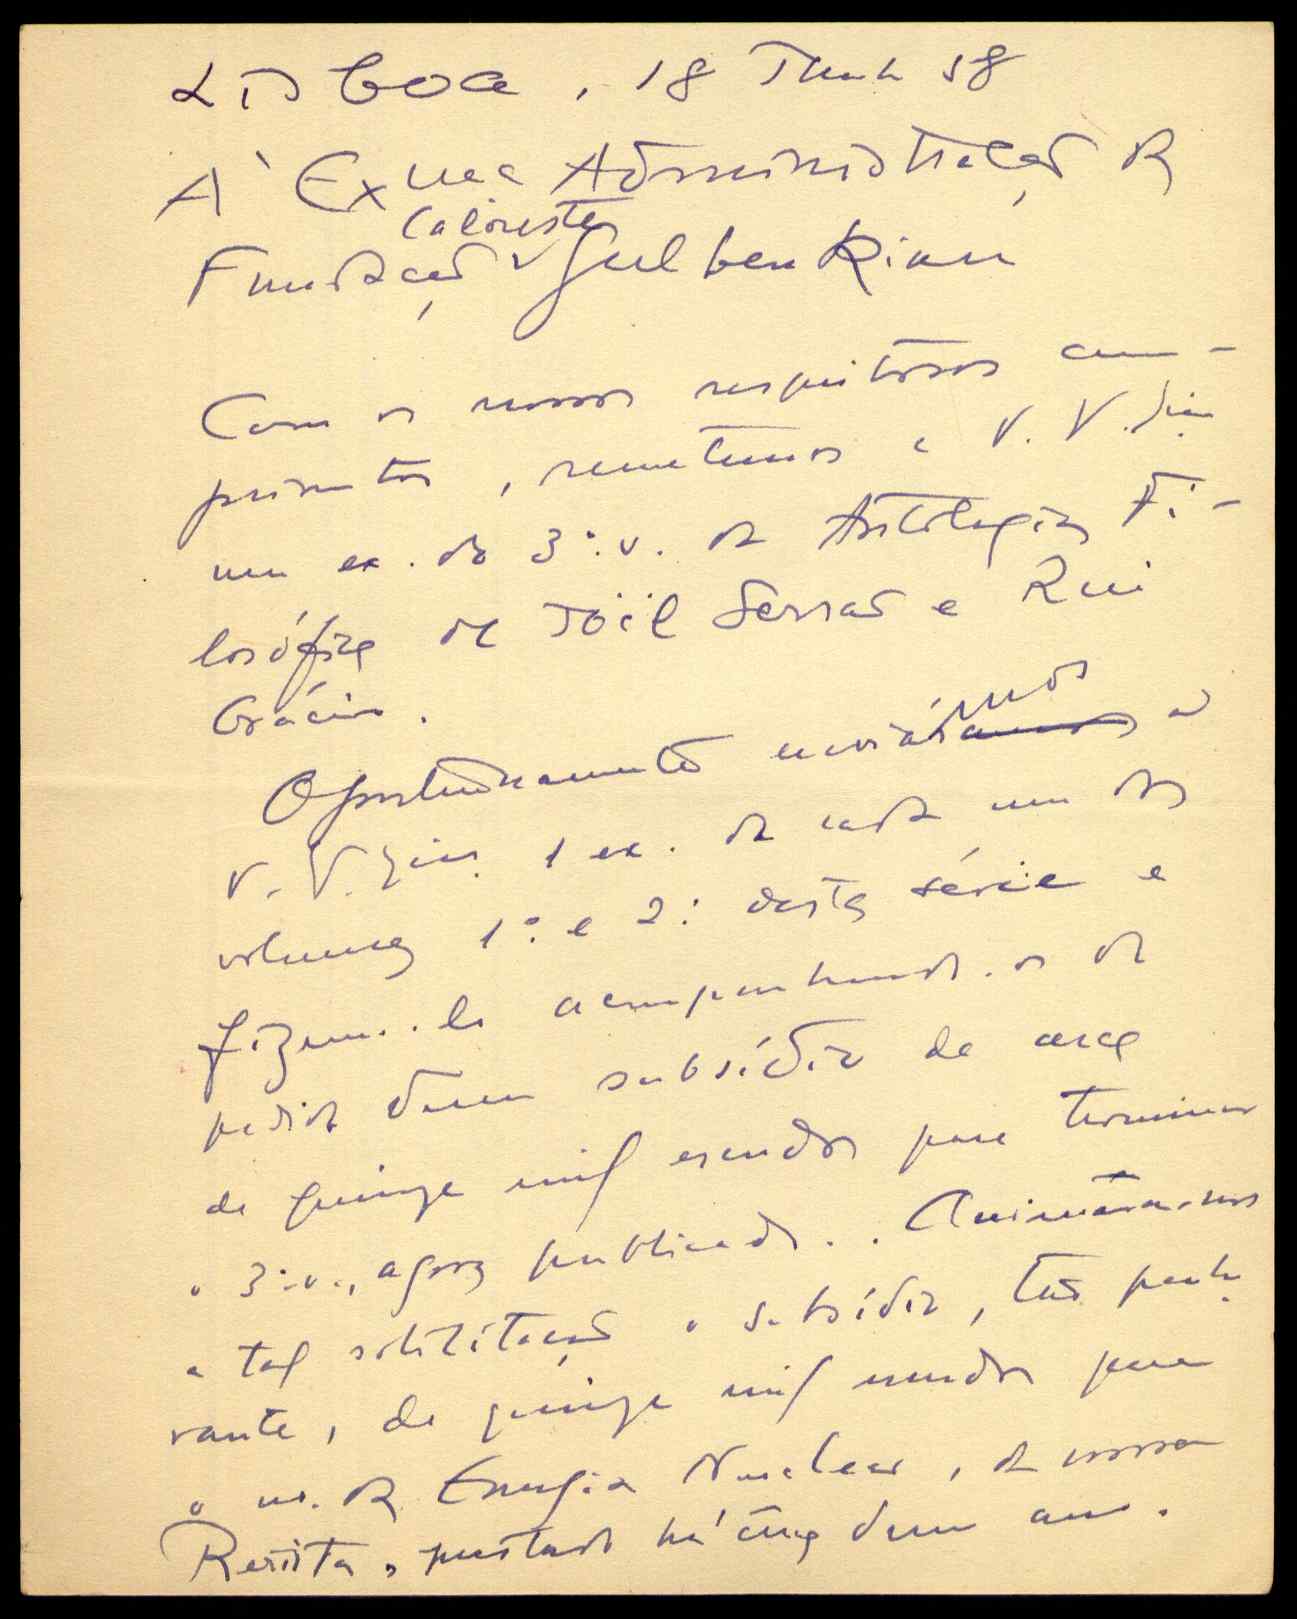 Lisboa, 18 Junho 58
À Exma Administração da
Fundação Calouste Gulbenkian
Com os nossos respeitosos cum-
primentos, remetemos a V. V. Exias
um ex. do 3º. v. da Antologia Fi-
losófica de Joël Serrão e Rui
Grácio.
Oportunamente enviámos a
V. V. Exias 1 ex. de cada um dos
volumes 1º. e 2º. desta série e
fizemo-lo acompanhando-os do
pedido dum subsídio de cerca
de quinze mil escudos para terminar
o 3º. v., agora publicado. Animara-nos
a tal solicitação o subsídio, tão
de quinze mil escudos para
o nº. da Energia Nuclear, da nossa
Revista, prestado há cerca dum ano.